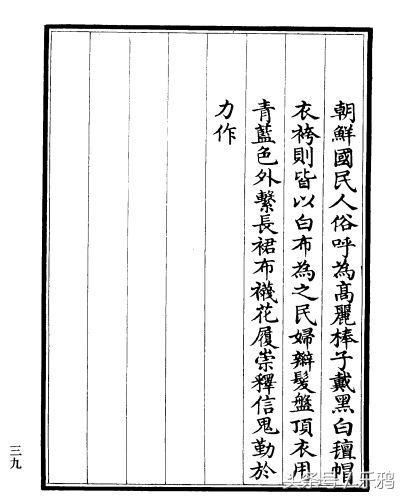 朝鮮國民人俗呼為髙麗棒子戴黑白氊帽
衣袴則皆以白布為之民婦辮髮盤頂衣用
青藍色外繫長裙布襪花履崇釋信鬼勤於
力作
三九